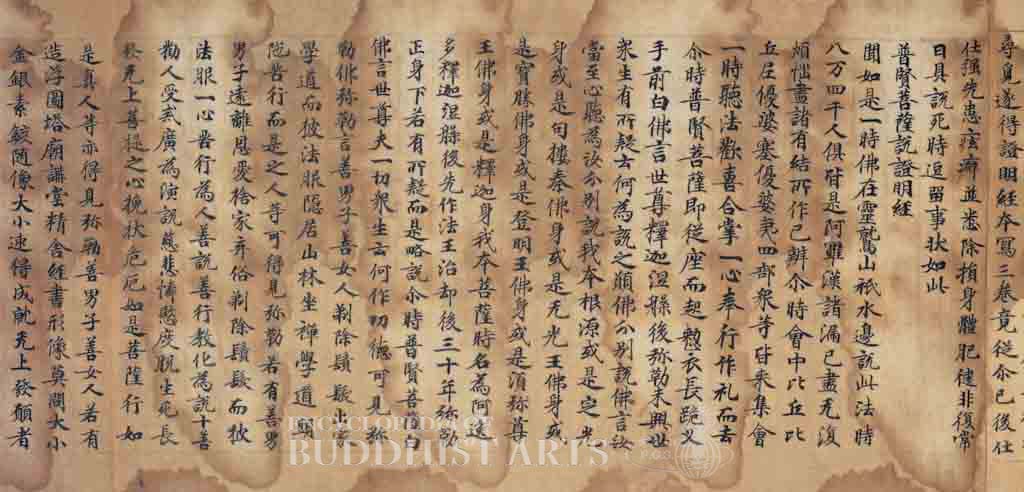 尋見遂得證明經本寫三卷竟從尒已後仕
仕强先患痃癖並悉除損身體肥健非復常
日具説死時逗留事狀如此
普賢菩薩説證明經
聞如是一時佛在靈鷲山祇水邊説此法時
八万四千人俱皆是阿羅漢諸漏已盡无復
煩惱盡諸有結所作已辨尒時會中比丘比
丘尼優婆塞優婆夷四部衆等皆来集會
一時聽法歡喜合掌一心奉行作礼而去
尒時普賢菩薩即從座而起整衣長跪叉
手前白佛言世尊釋迦涅槃後弥勒未興世
衆生有所疑云何為説之願佛分别説佛言汝
當至心聽為汝分别説我本根源或是定光
身或是句樓秦佛身或是无光王佛身或
是寶勝佛身或是登明王佛身或是湏弥尊
王佛身或是釋迦身我本菩薩時名為阿逸
多釋迦涅槃後先作法王治却後三十年弥勒
正身下若有所疑而是略説尒時普賢菩薩白
佛言世尊夫一切衆生云何作功德可見弥
勒佛弥勒言善男子善女人剃除鬚髮出家
學道而彼法服隱居山林坐禪學道頭
陁苦行而是之人等可得見弥勒若有善男
男子遠離恩愛捨家弃俗剃除鬚髮而彼
法服一心苦行為人善説善行教化為説十善
勸人受戒廣為演説慈悲憐愍度脱生死長
發无上菩提之心挽拔危厄如是菩薩行如
是真人等亦得見弥勒善男子善女人若有
造浮圖塔廟講堂精舍經書形像莫問大小
金銀素鍮随像大小速得成就无上發願者
ENCYCLOPEDIA OF
BUDDHIST ARTS